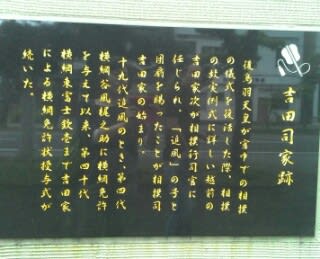 吉田司家跡
後鳥羽天皇が宮中での相撲
の儀式を復活した際、相撲
の故実例式に詳しい越前の
吉田家次が相撲行司官に
任じられ、「追風」の号と
団扇を賜ったことが相撲司
吉田家の始まり。
十九代追風のとき、第四代
横綱谷風梶之助に横綱免許
を与えて以来、第四十代
横綱東富士欽壱まで吉田家
による横綱免許状授与式が
続いた。